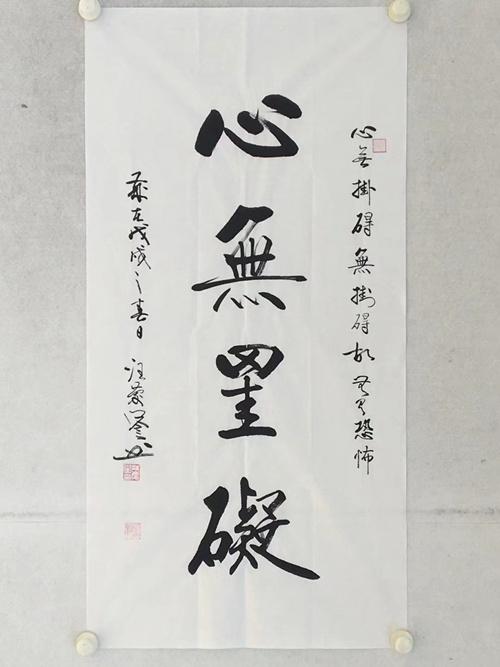 心无掛碍無掛碍故无有恐怖
心無罣礙
歲在戊戌之春日